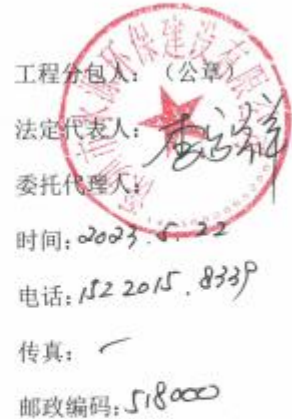 工程分包人：（公章）
法定代表人：
委托代理人：
时间：2023.5.22
电话：152 2015.8339
传真：一
邮政编码：518000
环保建设有限公司